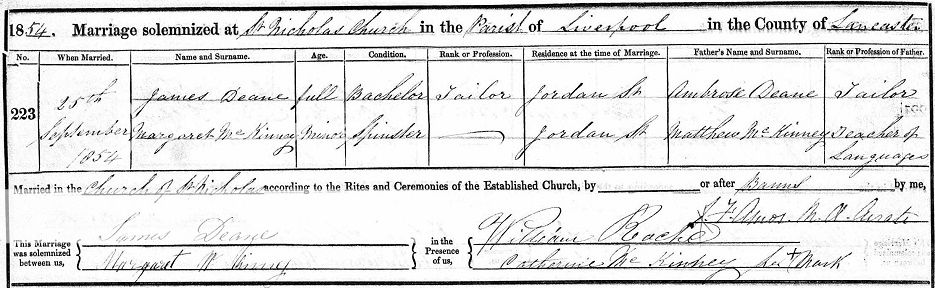 1854. Marriage solemnized at St Nicholas Church in the Parish of Liverpool in the County of Lancaster
No. When Married. Name and Surname. Age. Condition. Rank or Profession. Residence at the time of Marriage. Father's Name and Surname. Rank or Profession of Father.
223 25th September 1854 James Deane full Bachelor Tailor Jordan St Ambrose Deane Tailor
Margaret McKinney Minor Spinster — Jordan St Matthew McKinney Teacher of Languages
Married in the Church of St Nicholas according to the Rites and Ceremonies of the Established Church, by or after Banns by me,
Amos
This Marriage was solemnized between us,
James Deane
Margaret
in the Presence of us,
William Roche
Catherine McKinney her + Mark